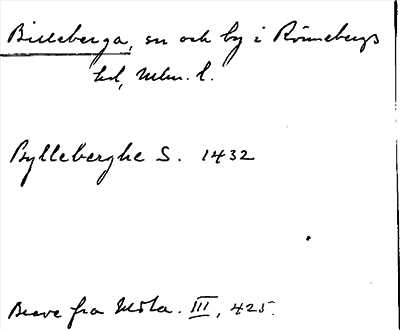 Billeberga, sn och by i Rönnebergs
hd, Mlm. l.
Bylleberghe S. 1432
Breve fra Utsla. III, 425.